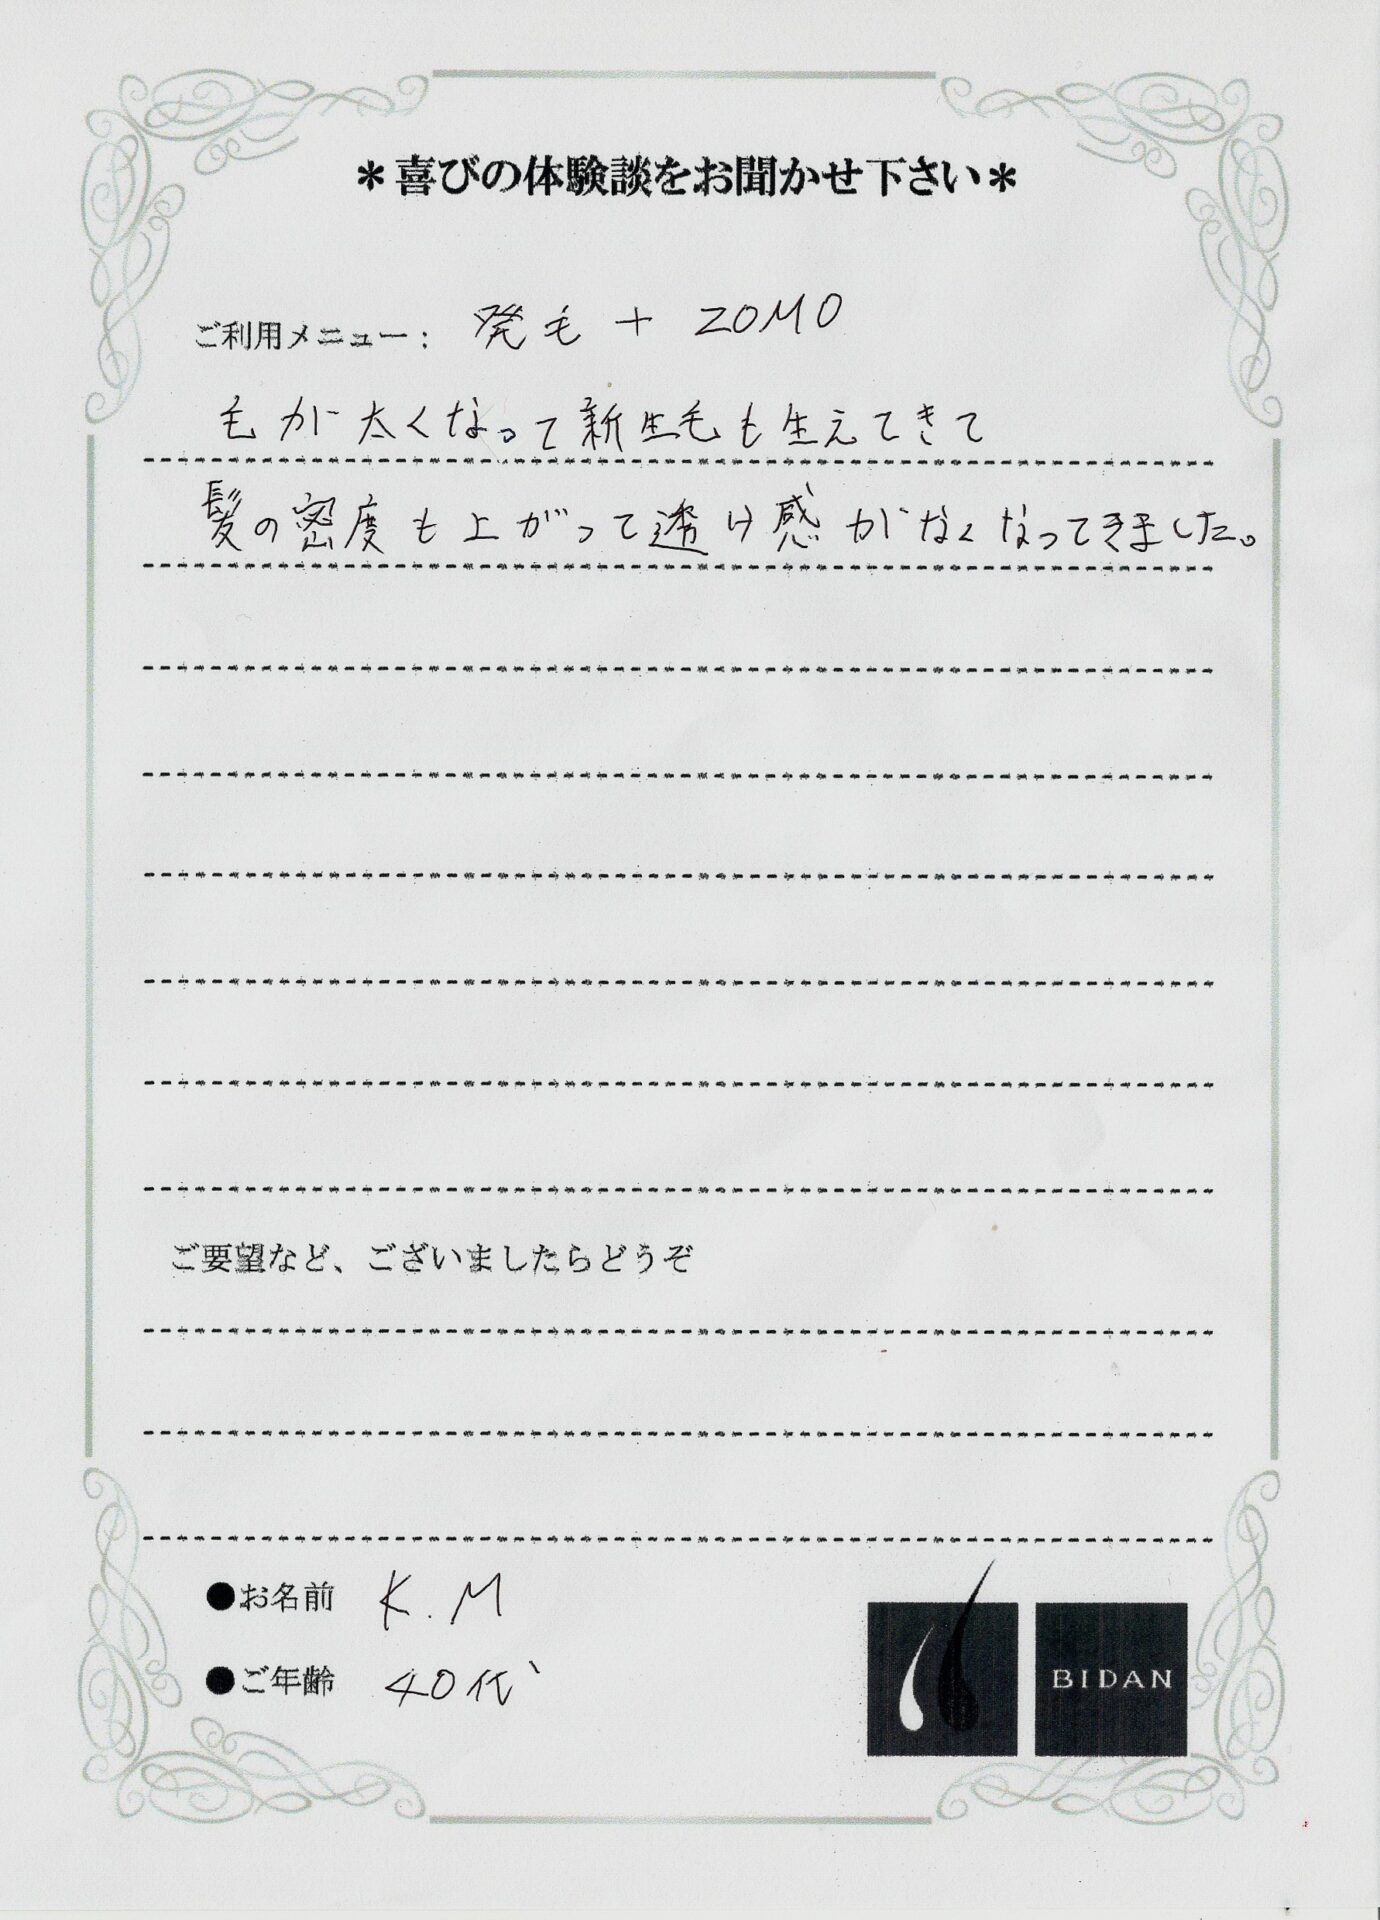 ＊喜びの体験談をお聞かせ下さい＊
ご利用メニュー： 発毛 + ZOMO
毛が太くなって新生毛も生えてきて
髪の密度も上がって透け感がなくなってきました。
ご要望など、ございましたらどうぞ
●お名前 K.M
●ご年齢 40代
BIDAN